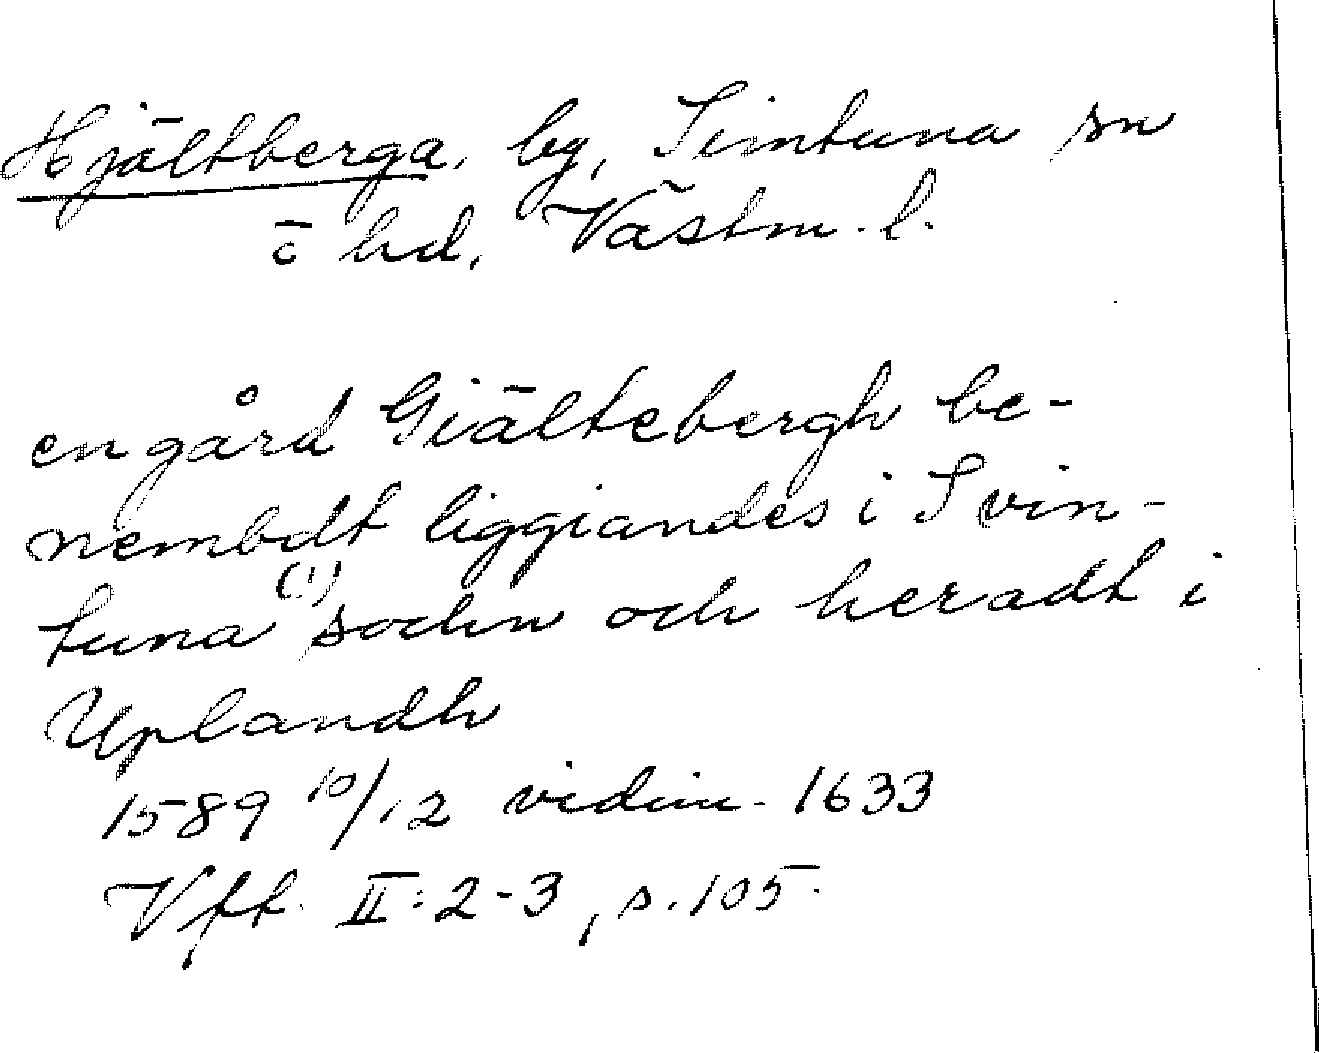 Hjältberga, by, Simtuna sn
o hd, Västm. l.
en gård Giältebergh be-
nembdt liggiandes i Svin-
tuna (!) sochn och heradt i
Uplandh
1589 10/12 vidim. 1633
Vft. II:2-3, s. 105.